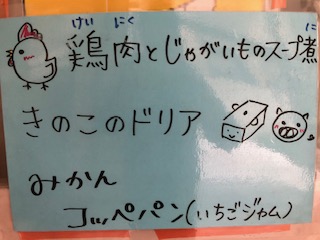 けい にく に
鶏肉とじゃがいものスープ煮
きのこのドリア
みかん
コッペパン(いちごジャム)